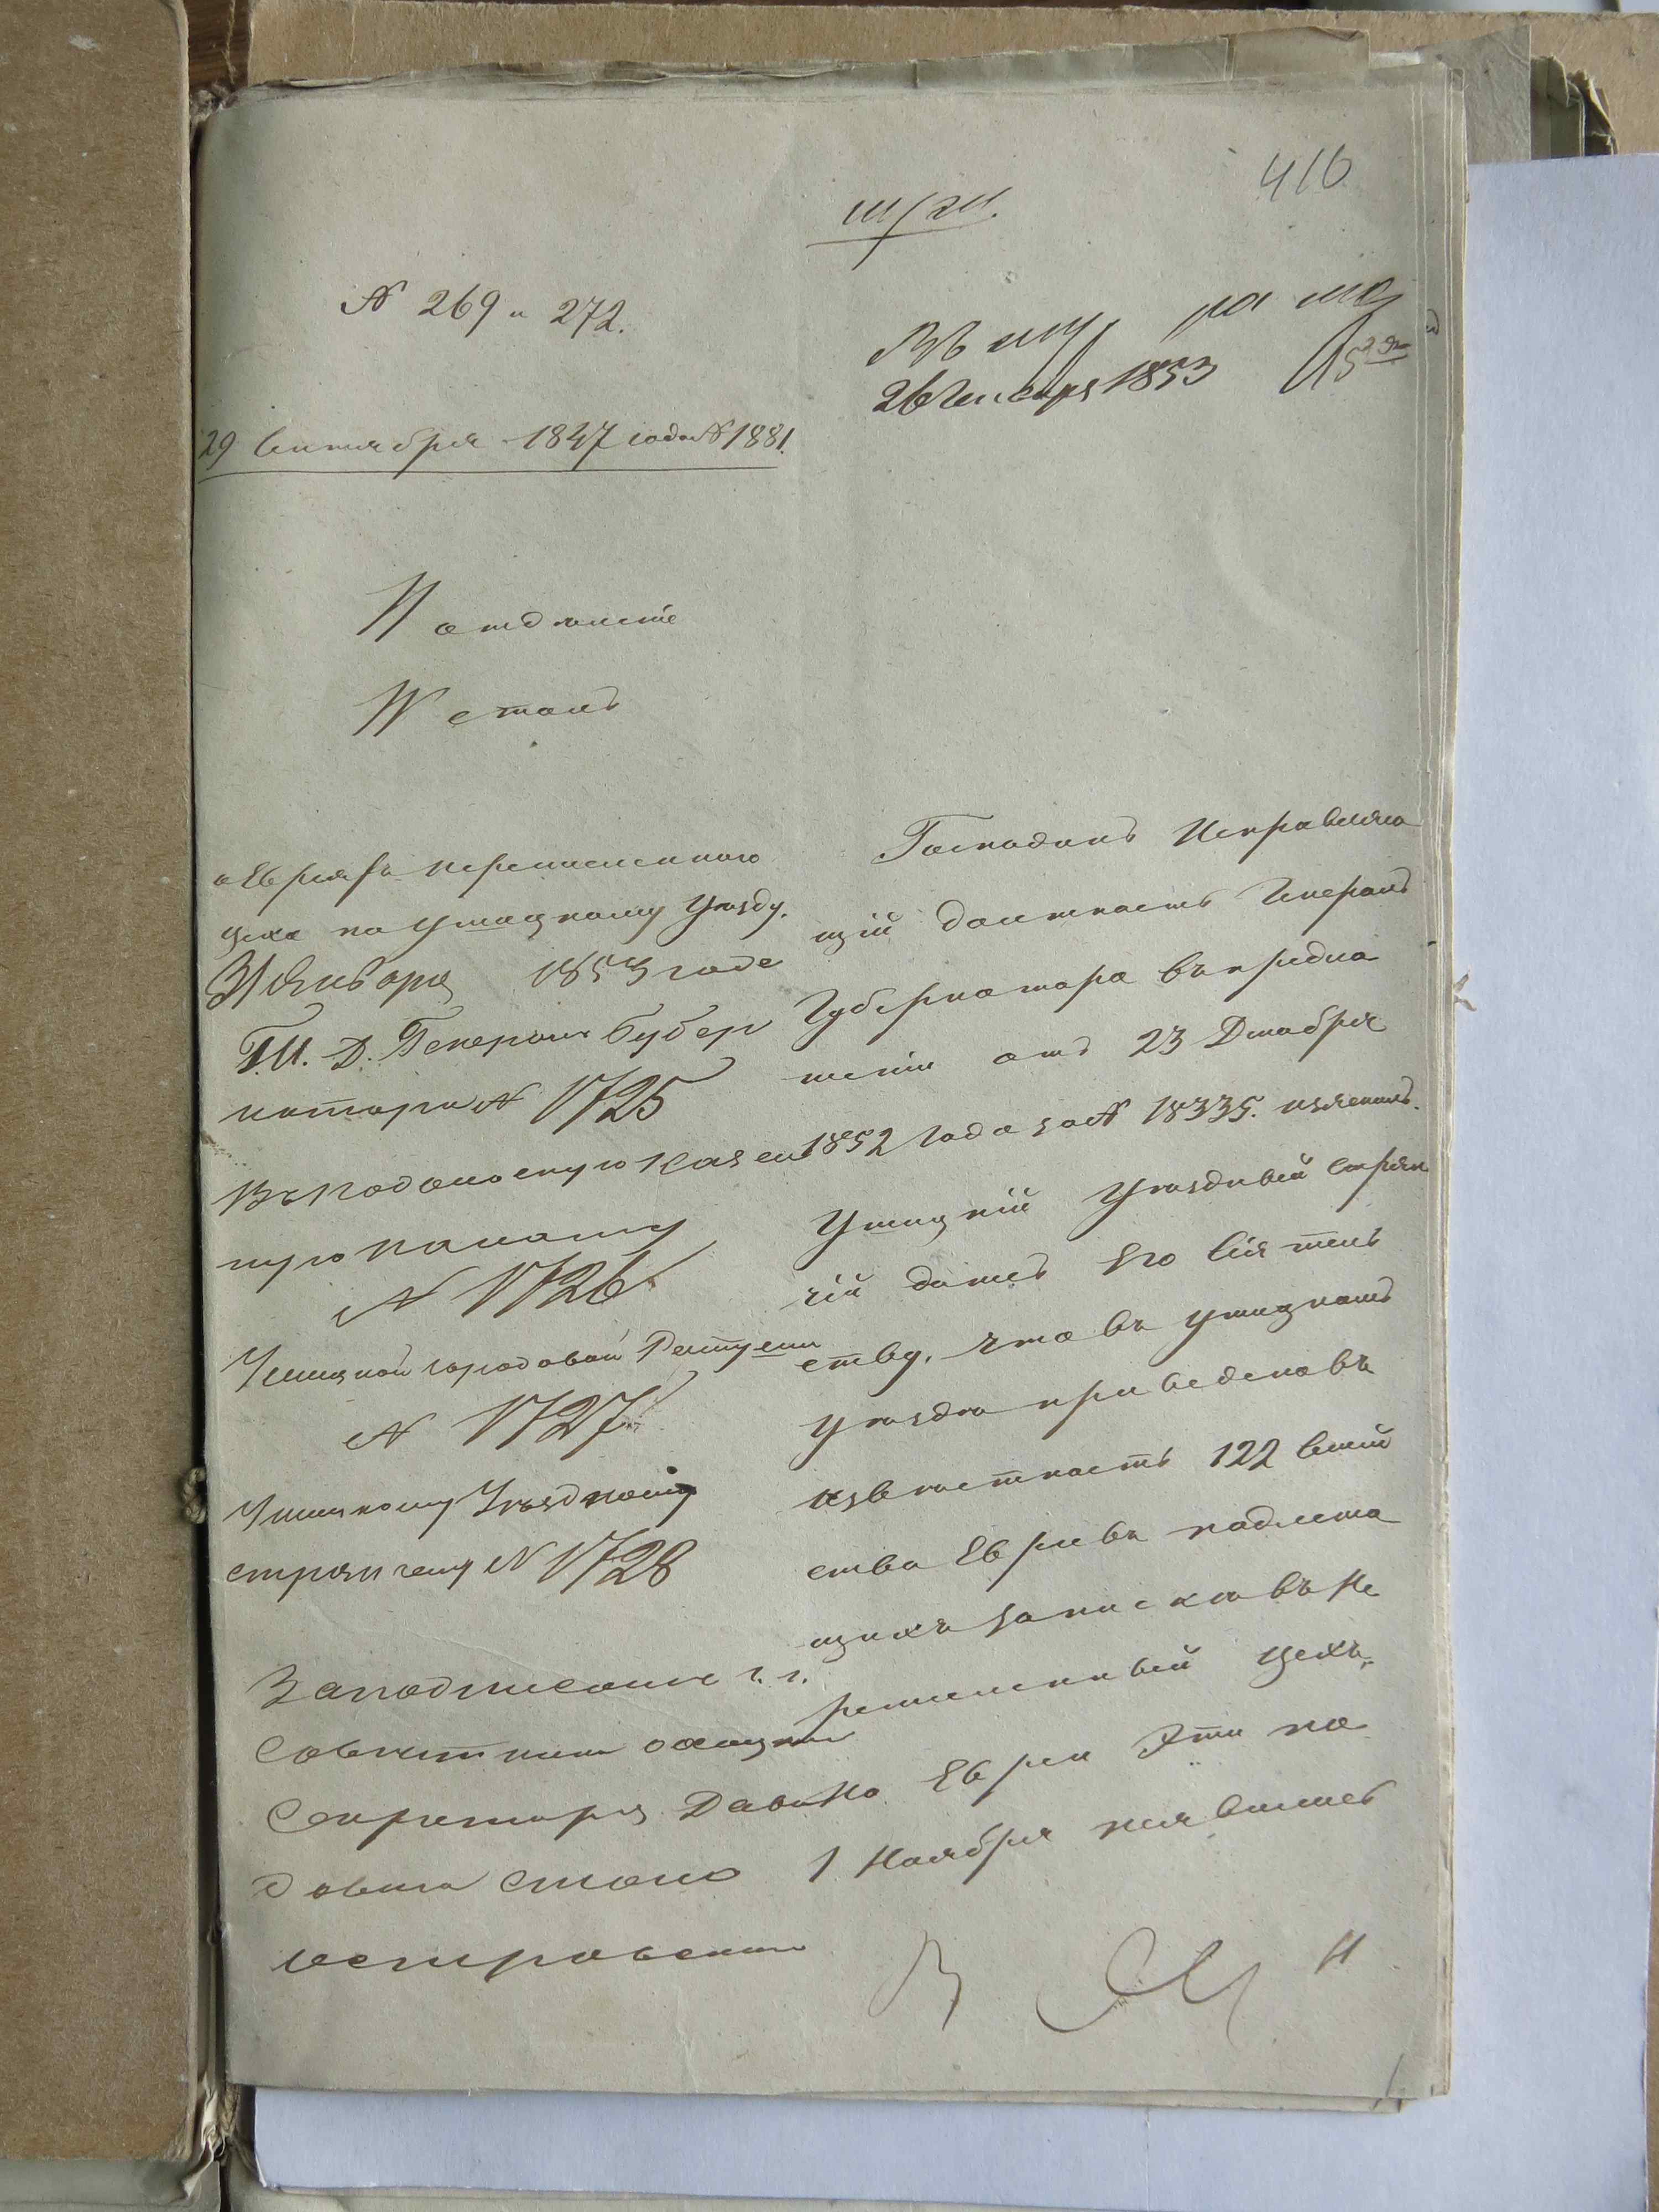 416
№ 269 и 272.
26 Генваря 1853
29 Сентября 1847 года № 1881.
II отделение
IV столъ
о Евреяхъ неремесленнаго
цеха по Ушицкому Уезду.
31 Января 1853 года
Г. И. Д. Генералъ Губер
натора № 1725
Въ Подольскую Казен
ную палату
№ 1726
Ушицкой городовой Ратуши
№ 1727
Ушицкому Уездному
стряпчему № 1728
За подписаніем г. г.
Советника
Секретаря
Столо
Господинъ Исправляю
щій должность Генералъ
Губернатора въ предло
женіи отъ 23 Декабря
1852 года за № 18335. изъяснилъ.
Ушицкій Уездный стряп
чій донесъ Его Сіятель
ству, что въ Ушицкомъ
Уезде приведено въ
известность 122 семей
ства Евреевъ подлежа
щихъ записке въ Не
ремесленный цехъ.
Но Евреи эти по
1 Ноября неявились